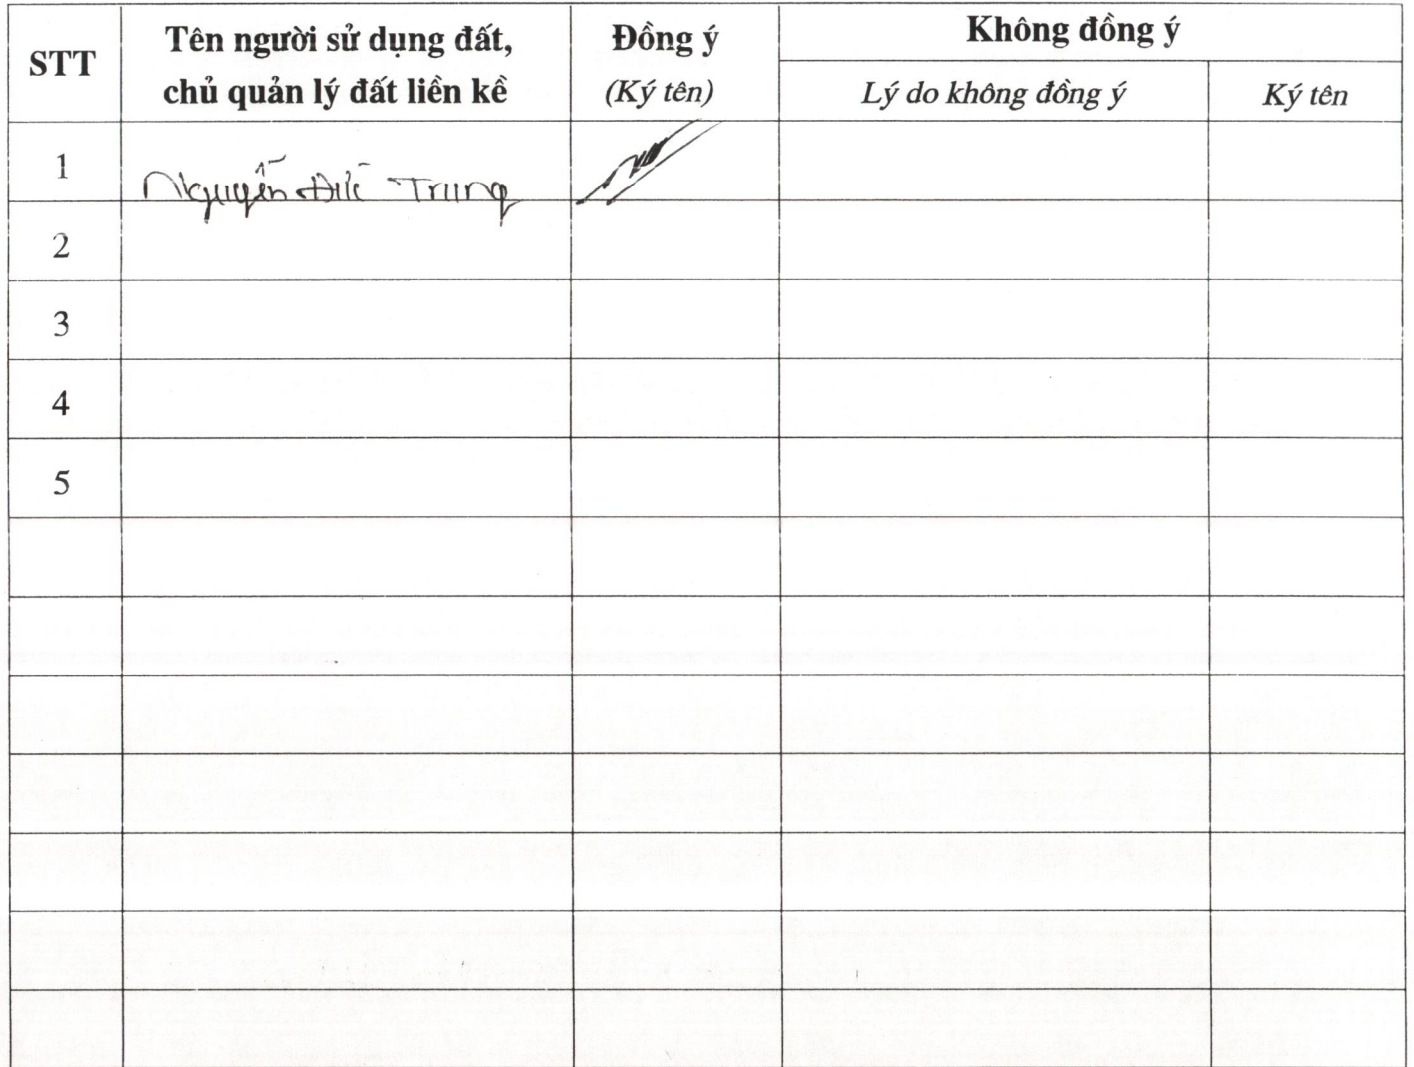 STT
Tên người sử dụng đất,
chủ quản lý đất liền kề
Đồng ý
(Ký tên)
Không đồng ý
Lý do không đồng ý
Ký tên
1
Nguyễn Đức Trung
2
3
4
5